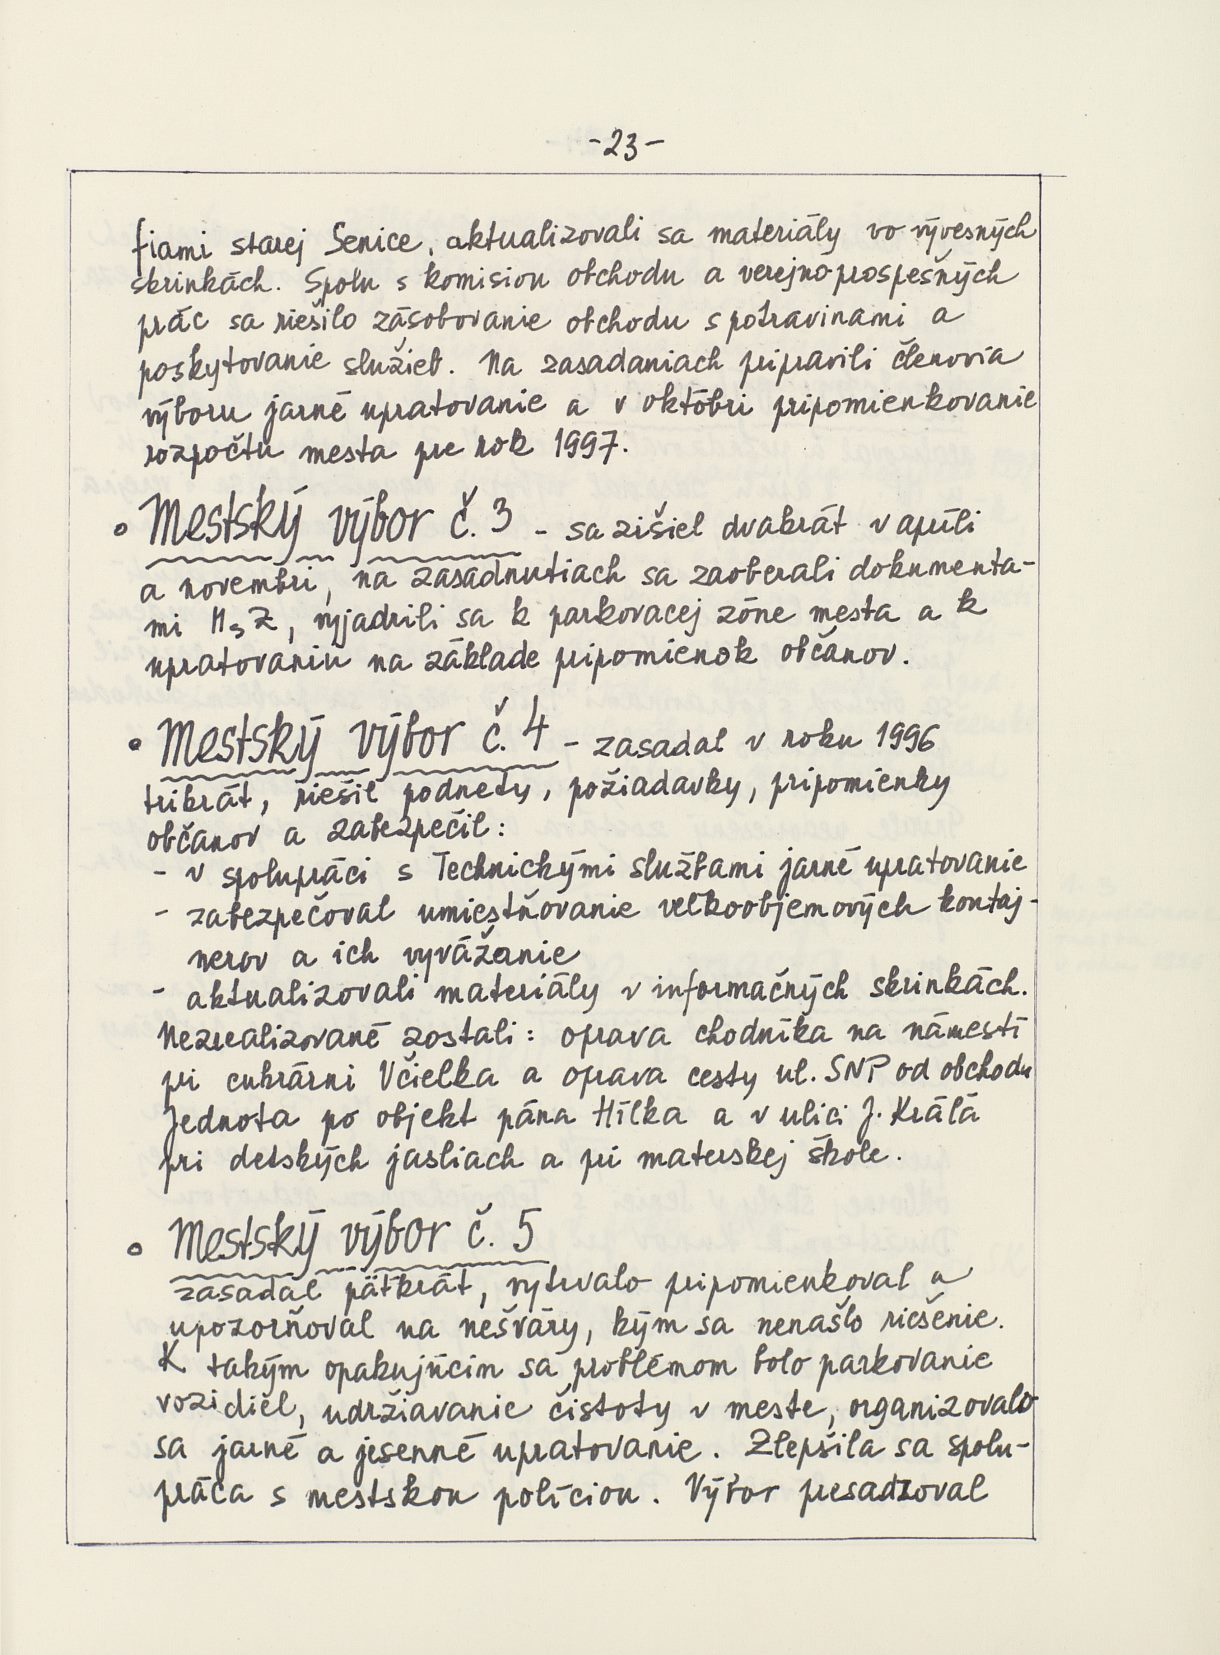 -23-
fiami starej Senice, aktualizovali sa materiály vo vývesných
skrinkách. Spolu s komisiou obchodu a verejnoprospešných
prác sa riešilo zásobovanie obchodu s potravinami a
poskytovanie služieb. Na zasadaniach pripravili členovia
výboru jarné upratovanie a v októbri pripomienkovanie
rozpočtu mesta pre rok 1997.
Mestský výbor č. 3 - sa zišiel dvakrát v apríli
a novembri, na zasadnutiach sa zaoberali dokumenta-
mi MsZ, vyjadrili sa k parkovacej zóne mesta a k
upratovaniu na základe pripomienok občanov.
Mestský výbor č. 4 - zasadal v roku 1996
trikrát, riešil podnety, požiadavky, pripomienky
občanov a zabezpečil:
- v spolupráci s Technickými službami jarné upratovanie
- zabezpečoval umiestňovanie veľkoobjemových kontaj-
nerov a ich vyvážanie
- aktualizovali materiály v informačných skrinkách.
Nezrealizované zostali: oprava chodníka na námestí
pri cukrárni Včielka a oprava cesty ul. SNP od obchodu
Jednota po objekt pána Hílka a v ulici J. Kráľa
pri detských jasliach a pri materskej škole.
Mestský výbor č. 5
zasadal päťkrát, vytrvalo pripomienkoval a
upozorňoval na nešváry, kým sa nenašlo riešenie.
K takým opakujúcim sa problémom bolo parkovanie
vozidiel, udržiavanie čistoty v meste, organizovalo
sa jarné a jesenné upratovanie. Zlepšila sa spolu-
práca s mestskou políciou. Výbor presadzoval